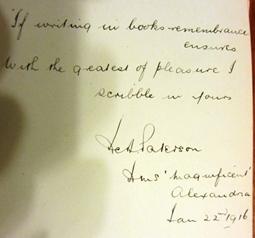 "If writing in books remembrance
ensures
With the greatest of pleasure I
scribble in yours
Paterson
Hms 'Magnificent'
Alexandria
Jan 22nd 1916